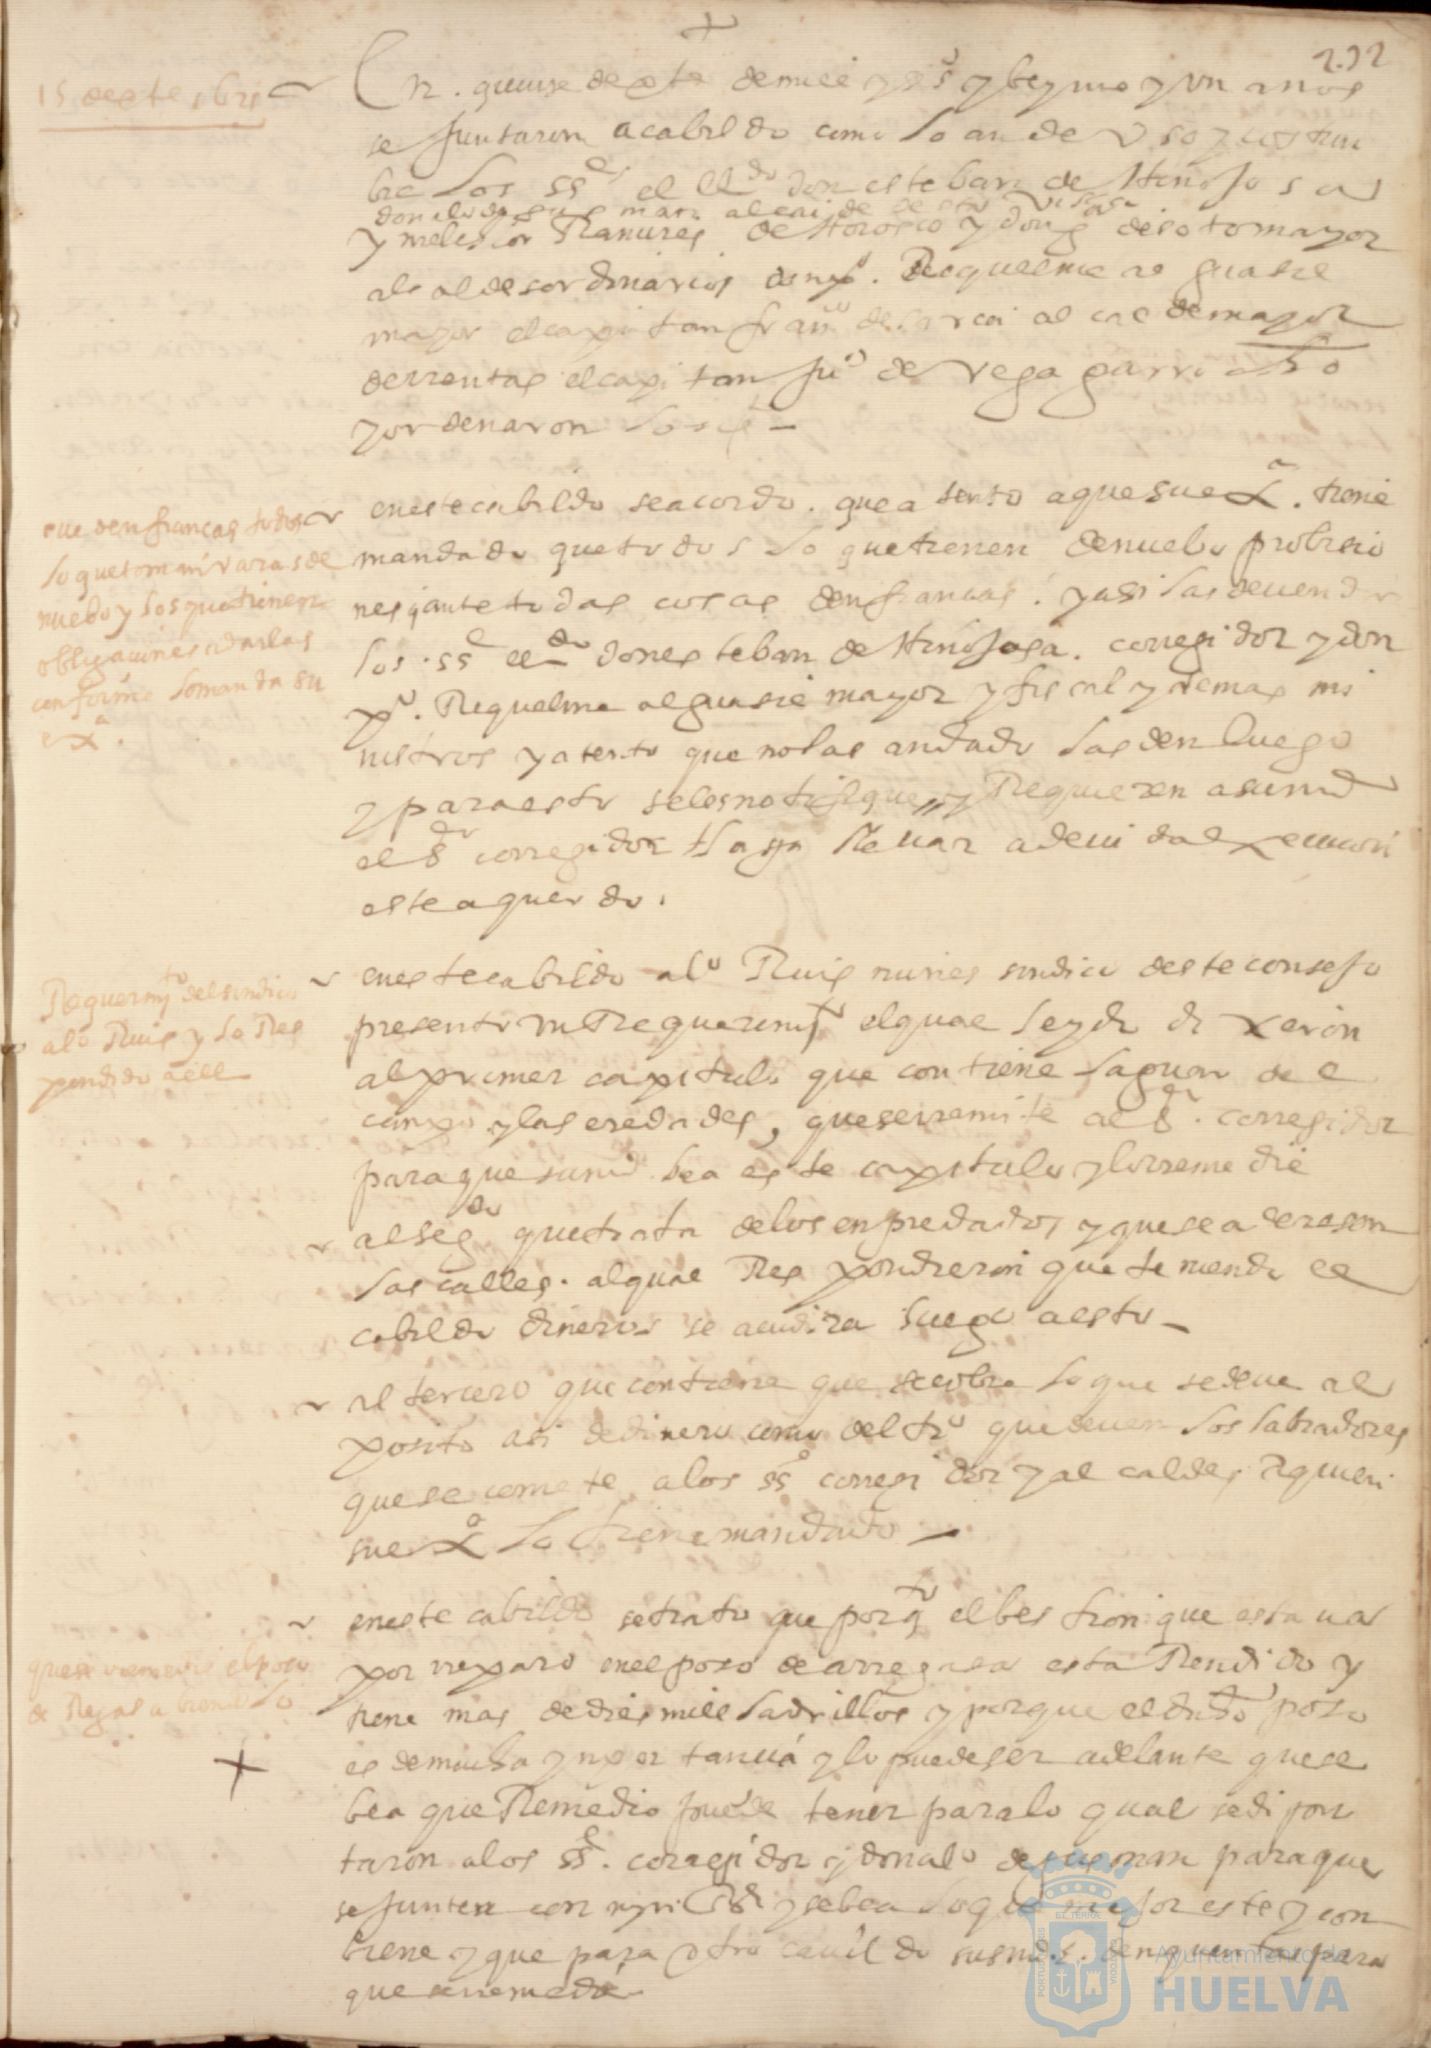 232
15 de 1621
En. quinse de de mill y ss y beynte y un anos
se Juntaron a cabildo como lo an de uso y costum
bre los ssres el lldo don esteban de Hinojosa
don alo de gusman alcaide de esta
y melchior Ramires de Horosco y don de sotomayor
alcaldes ordinarios don xpl. Requelme alguasil
mayor el capitan franco de alcalde mayor
de rrentas el capitan Juo de vega garrocho
y ordenaron lo sigte
que den fiansas todos
lo que toman varas de
nuebo y los que tienen
obligaciones darlas
conforme lo manda su
exa.
en este cabildo se acordo. que atento a que su exa. tiene
mandado que todos lo que tienen de nuebo probisio
nes ante todas cosas den fiansas. y asi las deven dar
los. ssres lldo don esteban de Hinojosa. corregidor y don
xpl. Requelme alguasil mayor y fiscal y demas mi
nistros y atento que no las an dado las den luego
y para esto se les notifique, y Requieren a su md
el sr corregidor Haga llevar a devida execucion
este aquerdo.
Requerimto del sindico
alo Ruis y lo Res
pondido a ell
en este cabildo alo Ruis nunes sindico deste consejo
presento un Requerimto el qual leydo dixeron
al primer capitulo que contiene la guar de el
campo y las eredades, que se rremite al sr. corregidor
para que su md bea este capitulo y lo rremedie
al segdo que trata de los enpredados y que se aderesen
las calles. al qual Respondieron que teniendo el
cabildo dineros se acudira luego a esto
al tercero que contiene que se cobre lo que se deve al
posito asi de dinero como del tro que deven los labradores
que se comete a los ssres corregidor y alcaldes
su exa lo tiene mandado
que se rremedie el poso
de Regas a
en este cabildo se trato que por qto el bestion que estava
por rreparo en el poso de esta Rendido y
tiene mas de dies mill ladrillos y porque el dicho poso
es de mucha ynportancia y lo puede ser adelante que se
bea que Remedio puede tener para lo qual se dipon
taron a los ssres. corregidor y don alo de gusman para que
se junten con y se bea lo que mejor este y con
biene y que para otro cavildo sus mds. den quenta para
que se rremedie
PORTUS MARIS
ET TERRAE
CUSTODIA
Ayuntamiento de
HUELVA